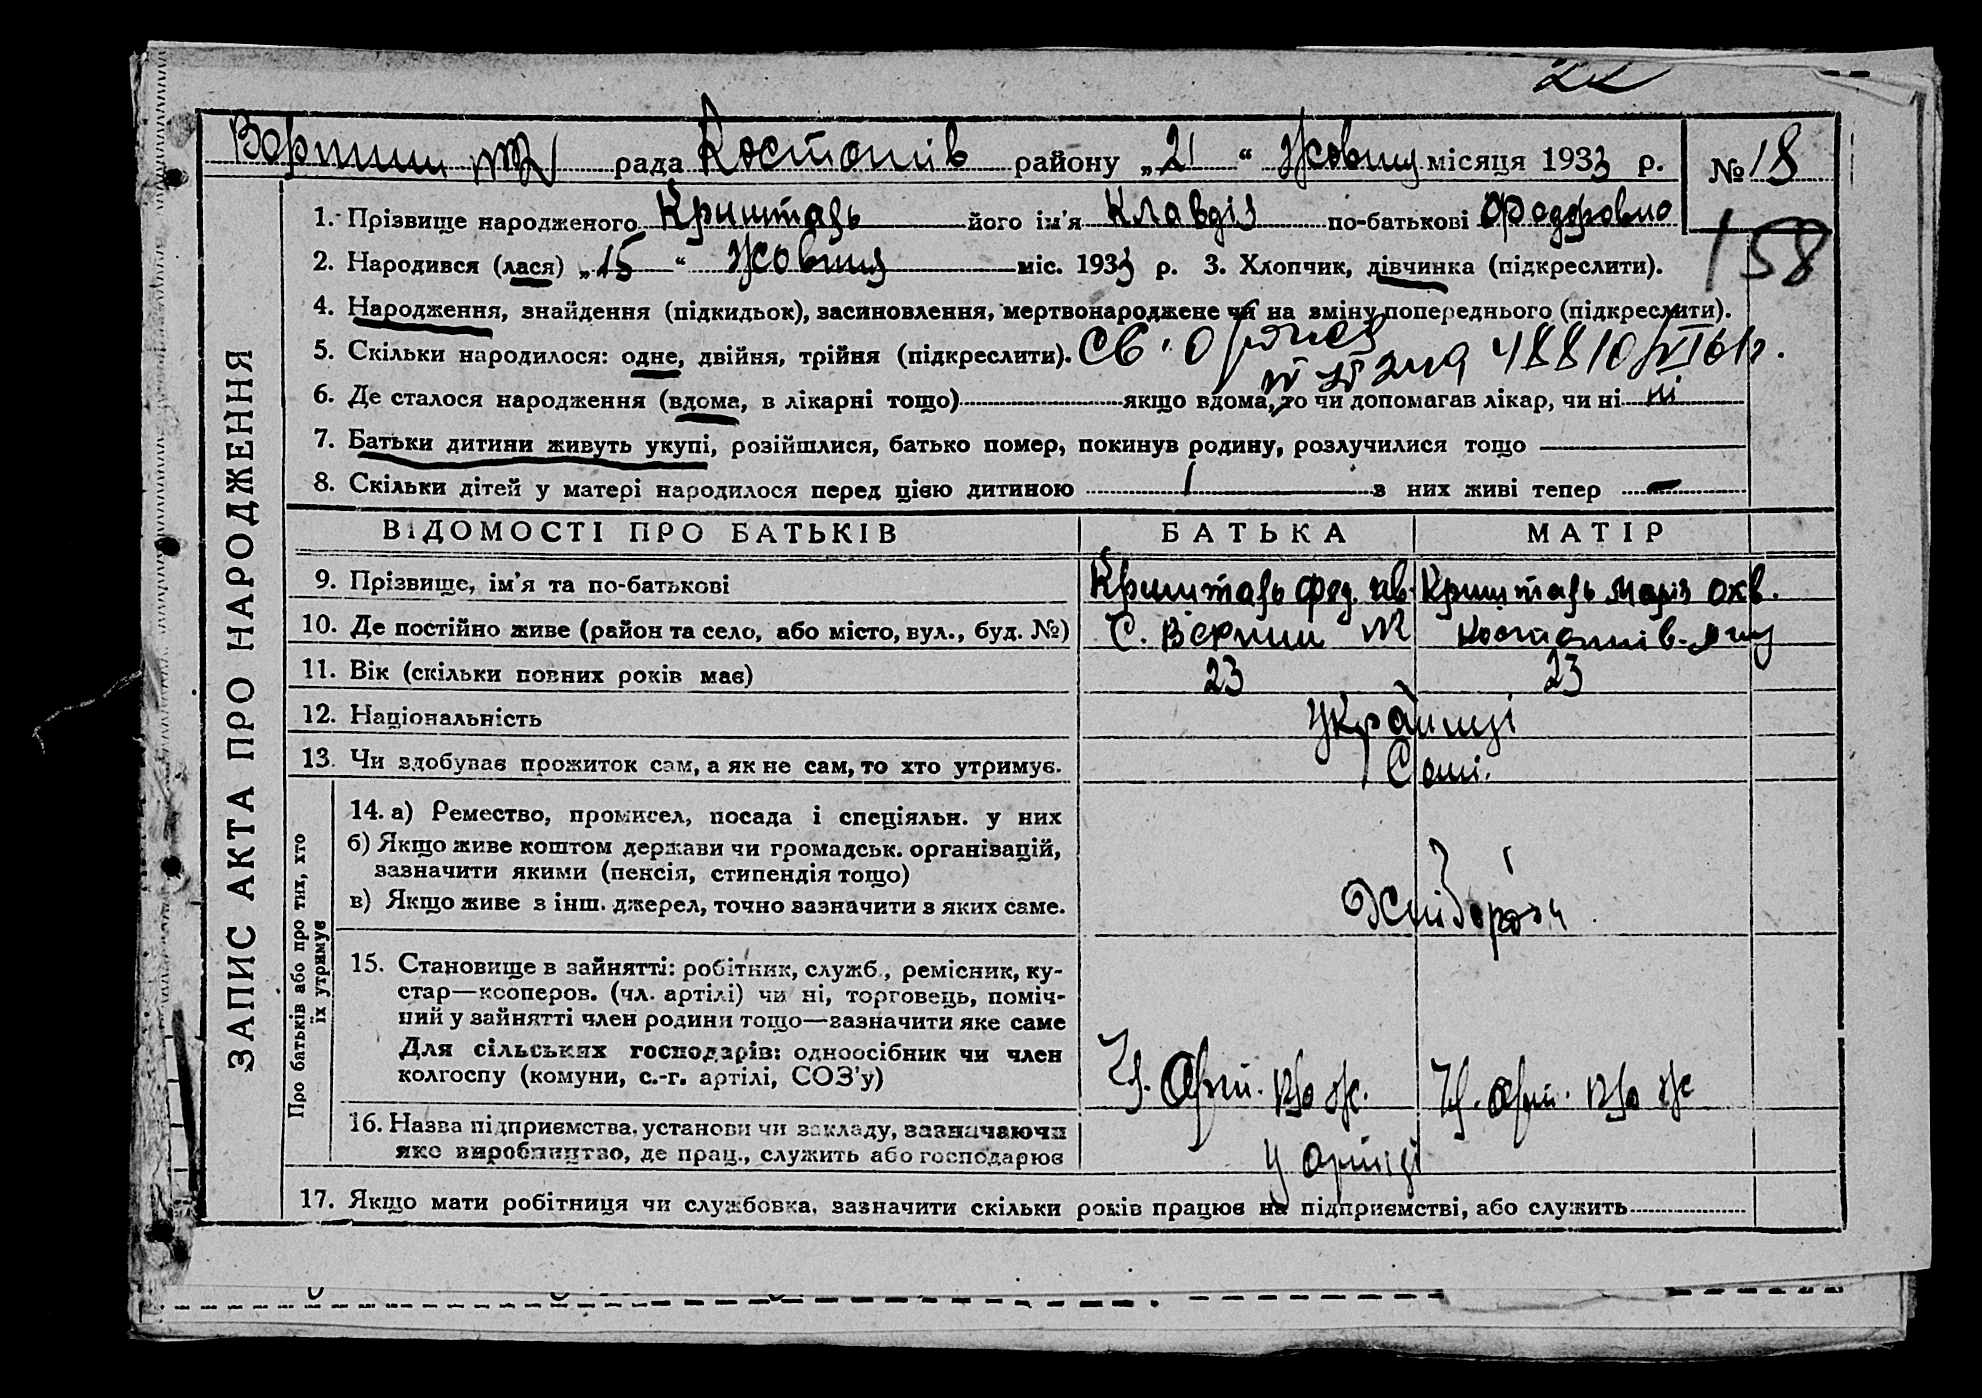 22
рада Костянтів району „21“ Жовтня місяця 1933 р. № 18
1. Прізвище народженого Кришталь його ім'я Клавдія по-батькові Федоровна
158
2. Народився (лася) „15“ Жовтня міс. 1933 р. 3. Хлопчик, дівчинка (підкреслити).
4. Народження, знайдення (підкидьок), засиновлення, мертвонароджене чи на зміну попереднього (підкреслити).
5. Скільки народилося: одне, двійня, трійня (підкреслити). Св.
6. Де сталося народження (вдома, в лікарні тощо) якщо вдома, то чи допомагав лікар, чи ні ні
7. Батьки дитини живуть укупі, розійшлися, батько помер, покинув родину, розлучилися тощо
8. Скільки дітей у матері народилося перед цією дитиною 1 з них живі тепер —
ВІДОМОСТІ ПРО БАТЬКІВ БАТЬКА МАТІР
9. Прізвище, ім'я та по-батькові Кришталь Фед. Ів. Кришталь Марія
10. Де постійно живе (район та село, або місто, вул., буд. №) С.
11. Вік (скільки повних років має) 23 23
12. Національність Українці
13. Чи здобуває прожиток сам, а як не сам, то хто утримує. Самі.
14. а) Ремество, промисел, посада і спеціяльн. у них
б) Якщо живе коштом держави чи громадськ. організацій,
зазначити якими (пенсія, стипендія тощо)
в) Якщо живе з інш. джерел, точно зазначити з яких саме. Хлібороби
15. Становище в зайнятті: робітник, служб., ремісник, ку-
стар—кооперов. (чл. артілі) чи ні, торговець, поміч-
ний у зайнятті член родини тощо—зазначити яке саме
Для сільських господарів: одноосібник чи член
колгоспу (комуни, с.-г. артілі, СОЗ'у)
16. Назва підприємства, установи чи закладу, зазначаючи
яке виробництво, де прац., служить або господарює у артілі
17. Якщо мати робітниця чи службовка, зазначити скільки років працює на підприємстві, або служить
ЗАПИС АКТА ПРО НАРОДЖЕННЯ
Про батьків або про тих, хто
їх утримує